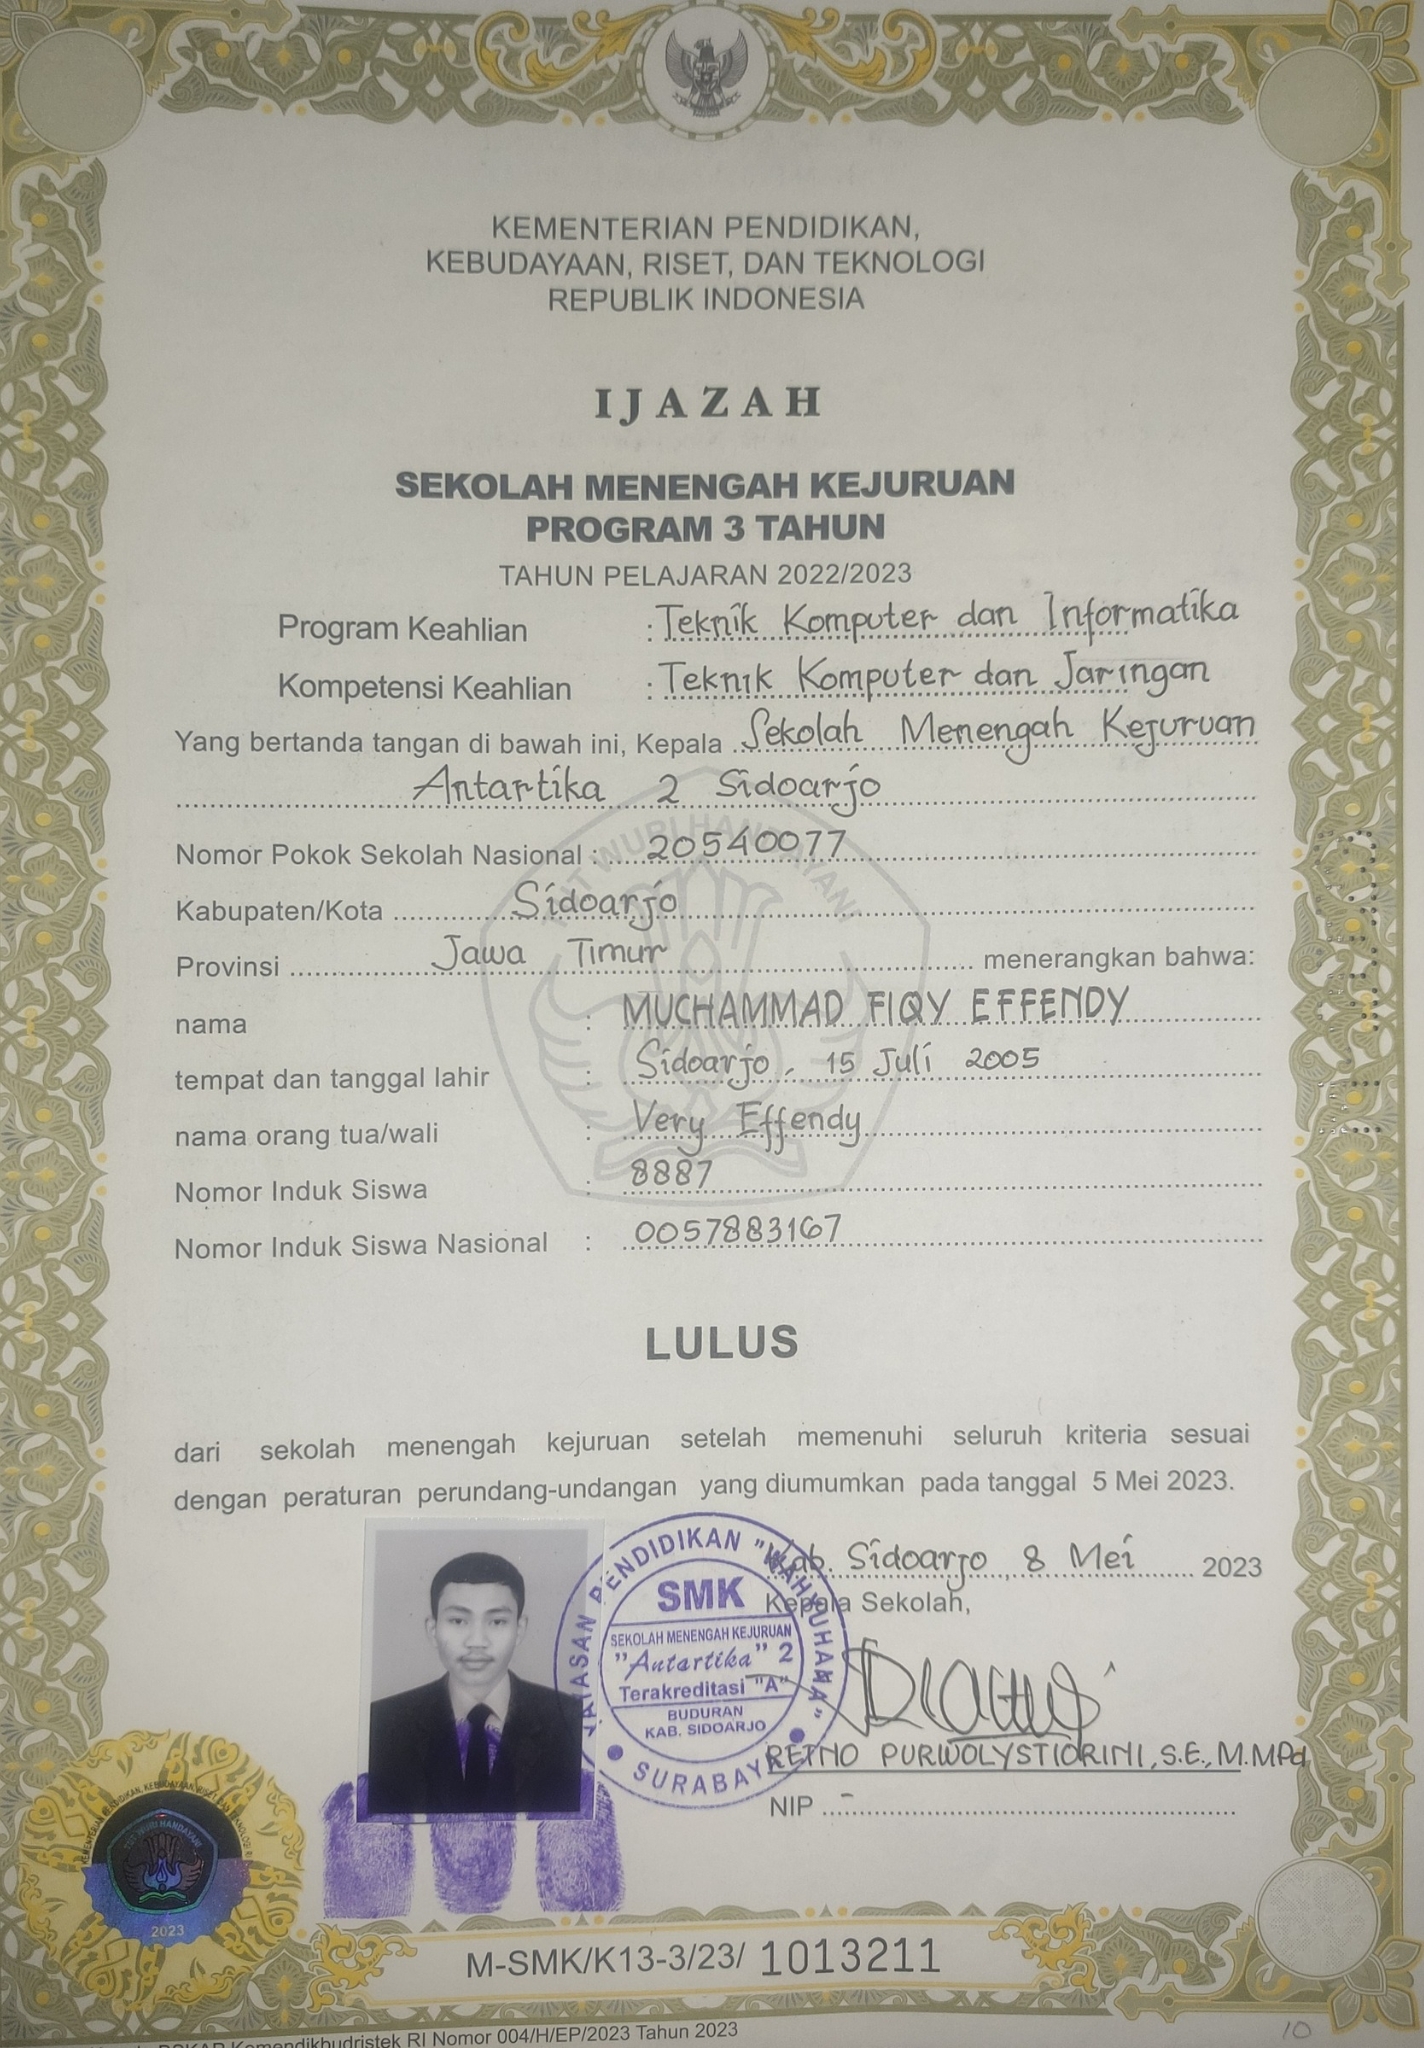 KEMENTERIAN PENDIDIKAN,
KEBUDAYAAN, RISET, DAN TEKNOLOGI
REPUBLIK INDONESIA
IJAZAH
SEKOLAH MENENGAH KEJURUAN
PROGRAM 3 TAHUN
TAHUN PELAJARAN 2022/2023
Program Keahlian : Teknik Komputer dan Informatika
Kompetensi Keahlian : Teknik Komputer dan Jaringan
Yang bertanda tangan di bawah ini, Kepala Sekolah Menengah Kejuruan
Antartika 2 Sidoarjo
TUT WURI HANDAYANI
Nomor Pokok Sekolah Nasional : 20540077
Kabupaten/Kota Sidoarjo
Provinsi Jawa Timur menerangkan bahwa:
nama : MUCHAMMAD FIQY EFFENDY
tempat dan tanggal lahir : Sidoarjo, 15 Juli 2005
nama orang tua/wali : Very Effendy
Nomor Induk Siswa : 8887
Nomor Induk Siswa Nasional : 0057883167
LULUS
dari sekolah menengah kejuruan setelah memenuhi seluruh kriteria sesuai
dengan peraturan perundang-undangan yang diumumkan pada tanggal 5 Mei 2023.
Kab. Sidoarjo, 8 Mei 2023
Kepala Sekolah,
YAYASAN PENDIDIKAN
SMK
SEKOLAH MENENGAH KEJURUAN
"Antartika" 2
Terakreditasi "A"
BUDURAN
KAB. SIDOARJO
SURABAYA
RETNO PURWOLYSTIORINI, S.E., M.MPd
NIP -
KEMENTERIAN PENDIDIKAN, KEBUDAYAAN, RISET, DAN TEKNOLOGI
TUT WURI HANDAYANI
2023
M-SMK/K13-3/23/ 1013211
Kemendikbudristek RI Nomor 004/H/EP/2023 Tahun 2023
10